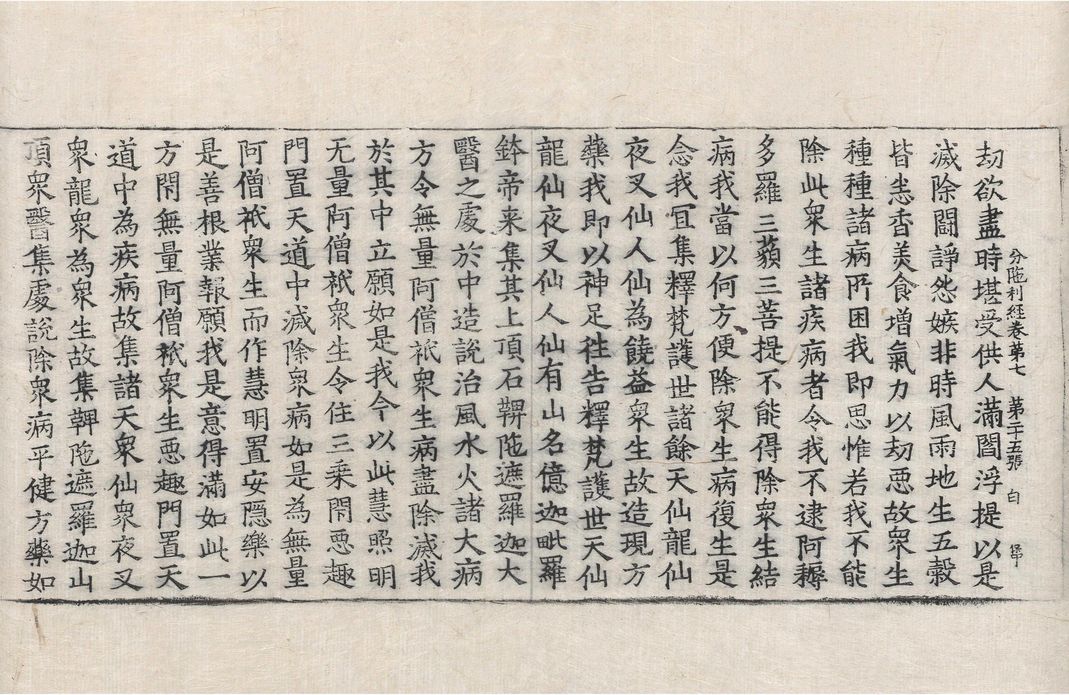 分陁利經卷第七 第二十五張 白
刧欲盡時堪受供人滿閻浮提以是
滅除鬪諍怨嫉非時風雨地生五穀
皆悉香美食增氣力以刧惡故衆生
種種諸病所困我即思惟若我不能
除此衆生諸疾病者令我不逮阿耨
多羅三藐三菩提不能得除衆生結
病我當以何方便除衆生病復生是
念我冝集釋梵護世諸餘天仙龍仙
夜叉仙人仙為饒益衆生故造現方
藥我即以神足往告釋梵護世天仙
龍仙夜叉仙人仙有山名億迦毗羅
鉢帝来集其上頂石鞞陁遮羅迦大
醫之處於中造說治風水火諸大病
方令無量阿僧祇衆生病盡除滅我
於其中立願如是我今以此慧照明
无量阿僧祇衆生令住三乘閇惡趣
門置天道中滅除衆病如是為無量
阿僧祇衆生而作慧明置安隱樂以
是善根業報願我是意得滿如此一
方閇無量阿僧祇衆生惡趣門置天
道中為疾病故集諸天衆仙衆夜叉
衆龍衆為衆生故集鞞陁遮羅迦山
頂衆醫集處說除衆病平健方藥如